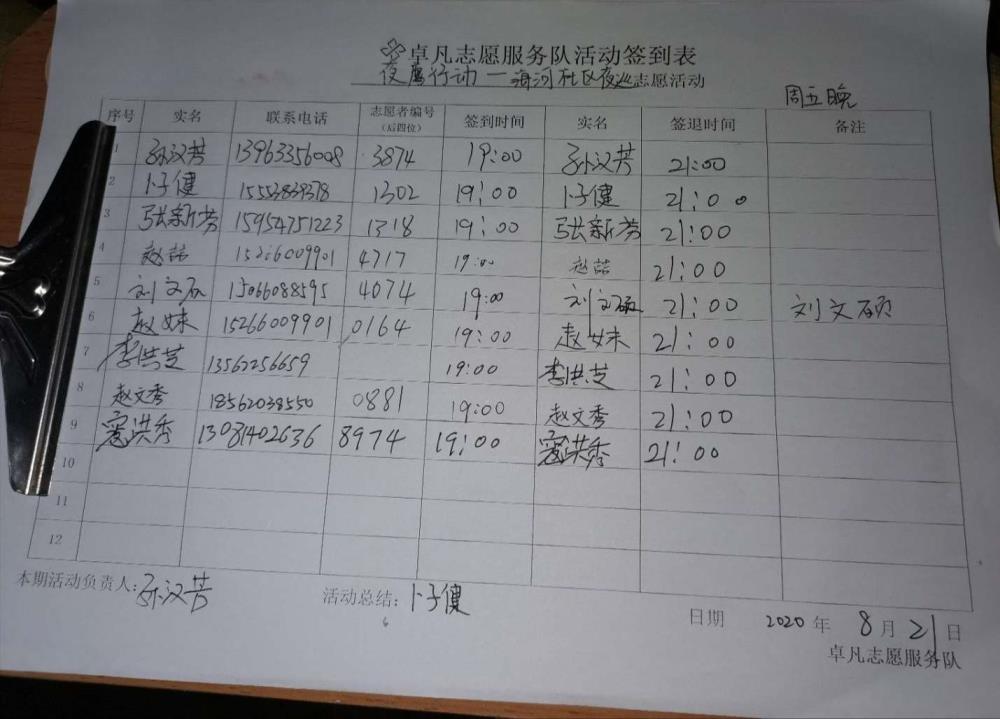 卓凡志愿服务队活动签到表
夜鹰行动一海河社区夜巡志愿活动
周五晚
序号 实名 联系电话 志愿者编号(后四位) 签到时间 实名 签退时间 备注
1 孙汉芳 13963356008 3874 19:00 孙汉芳 21:00
2 卜子健 15553839378 1302 19:00 卜子健 21:00
3 张新芳 15954751223 1318 19:00 张新芳 21:00
4 赵喆 15266009901 4717 19:00 赵喆 21:00
5 刘文硕 15066088595 4074 19:00 刘文硕 21:00 刘文硕
6 赵妹 15266009901 0164 19:00 赵妹 21:00
7 李洪芝 13562256659 19:00 李洪芝 21:00
8 赵文秀 18562038550 0881 19:00 赵文秀 21:00
9 寇洪秀 13081402636 8974 19:00 寇洪秀 21:00
10
11
12
本期活动负责人:孙汉芳 活动总结:卜子健
日期 2020 年 8 月 21 日
卓凡志愿服务队